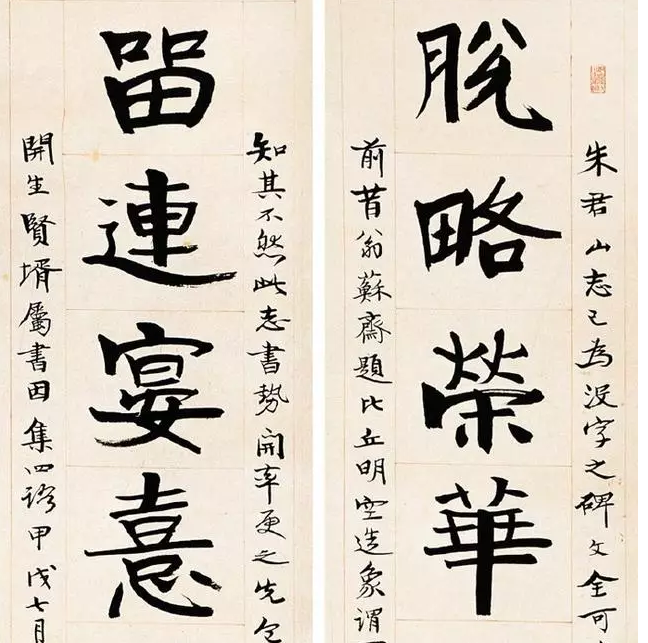 朱君山志已為沒字之碑文全可
脫略榮華
前昔翁蘇齋題比丘明空造象謂
知其不然此志書勢開率更之先
留連宴憙
開生賢壻屬書因集四語甲戌七月